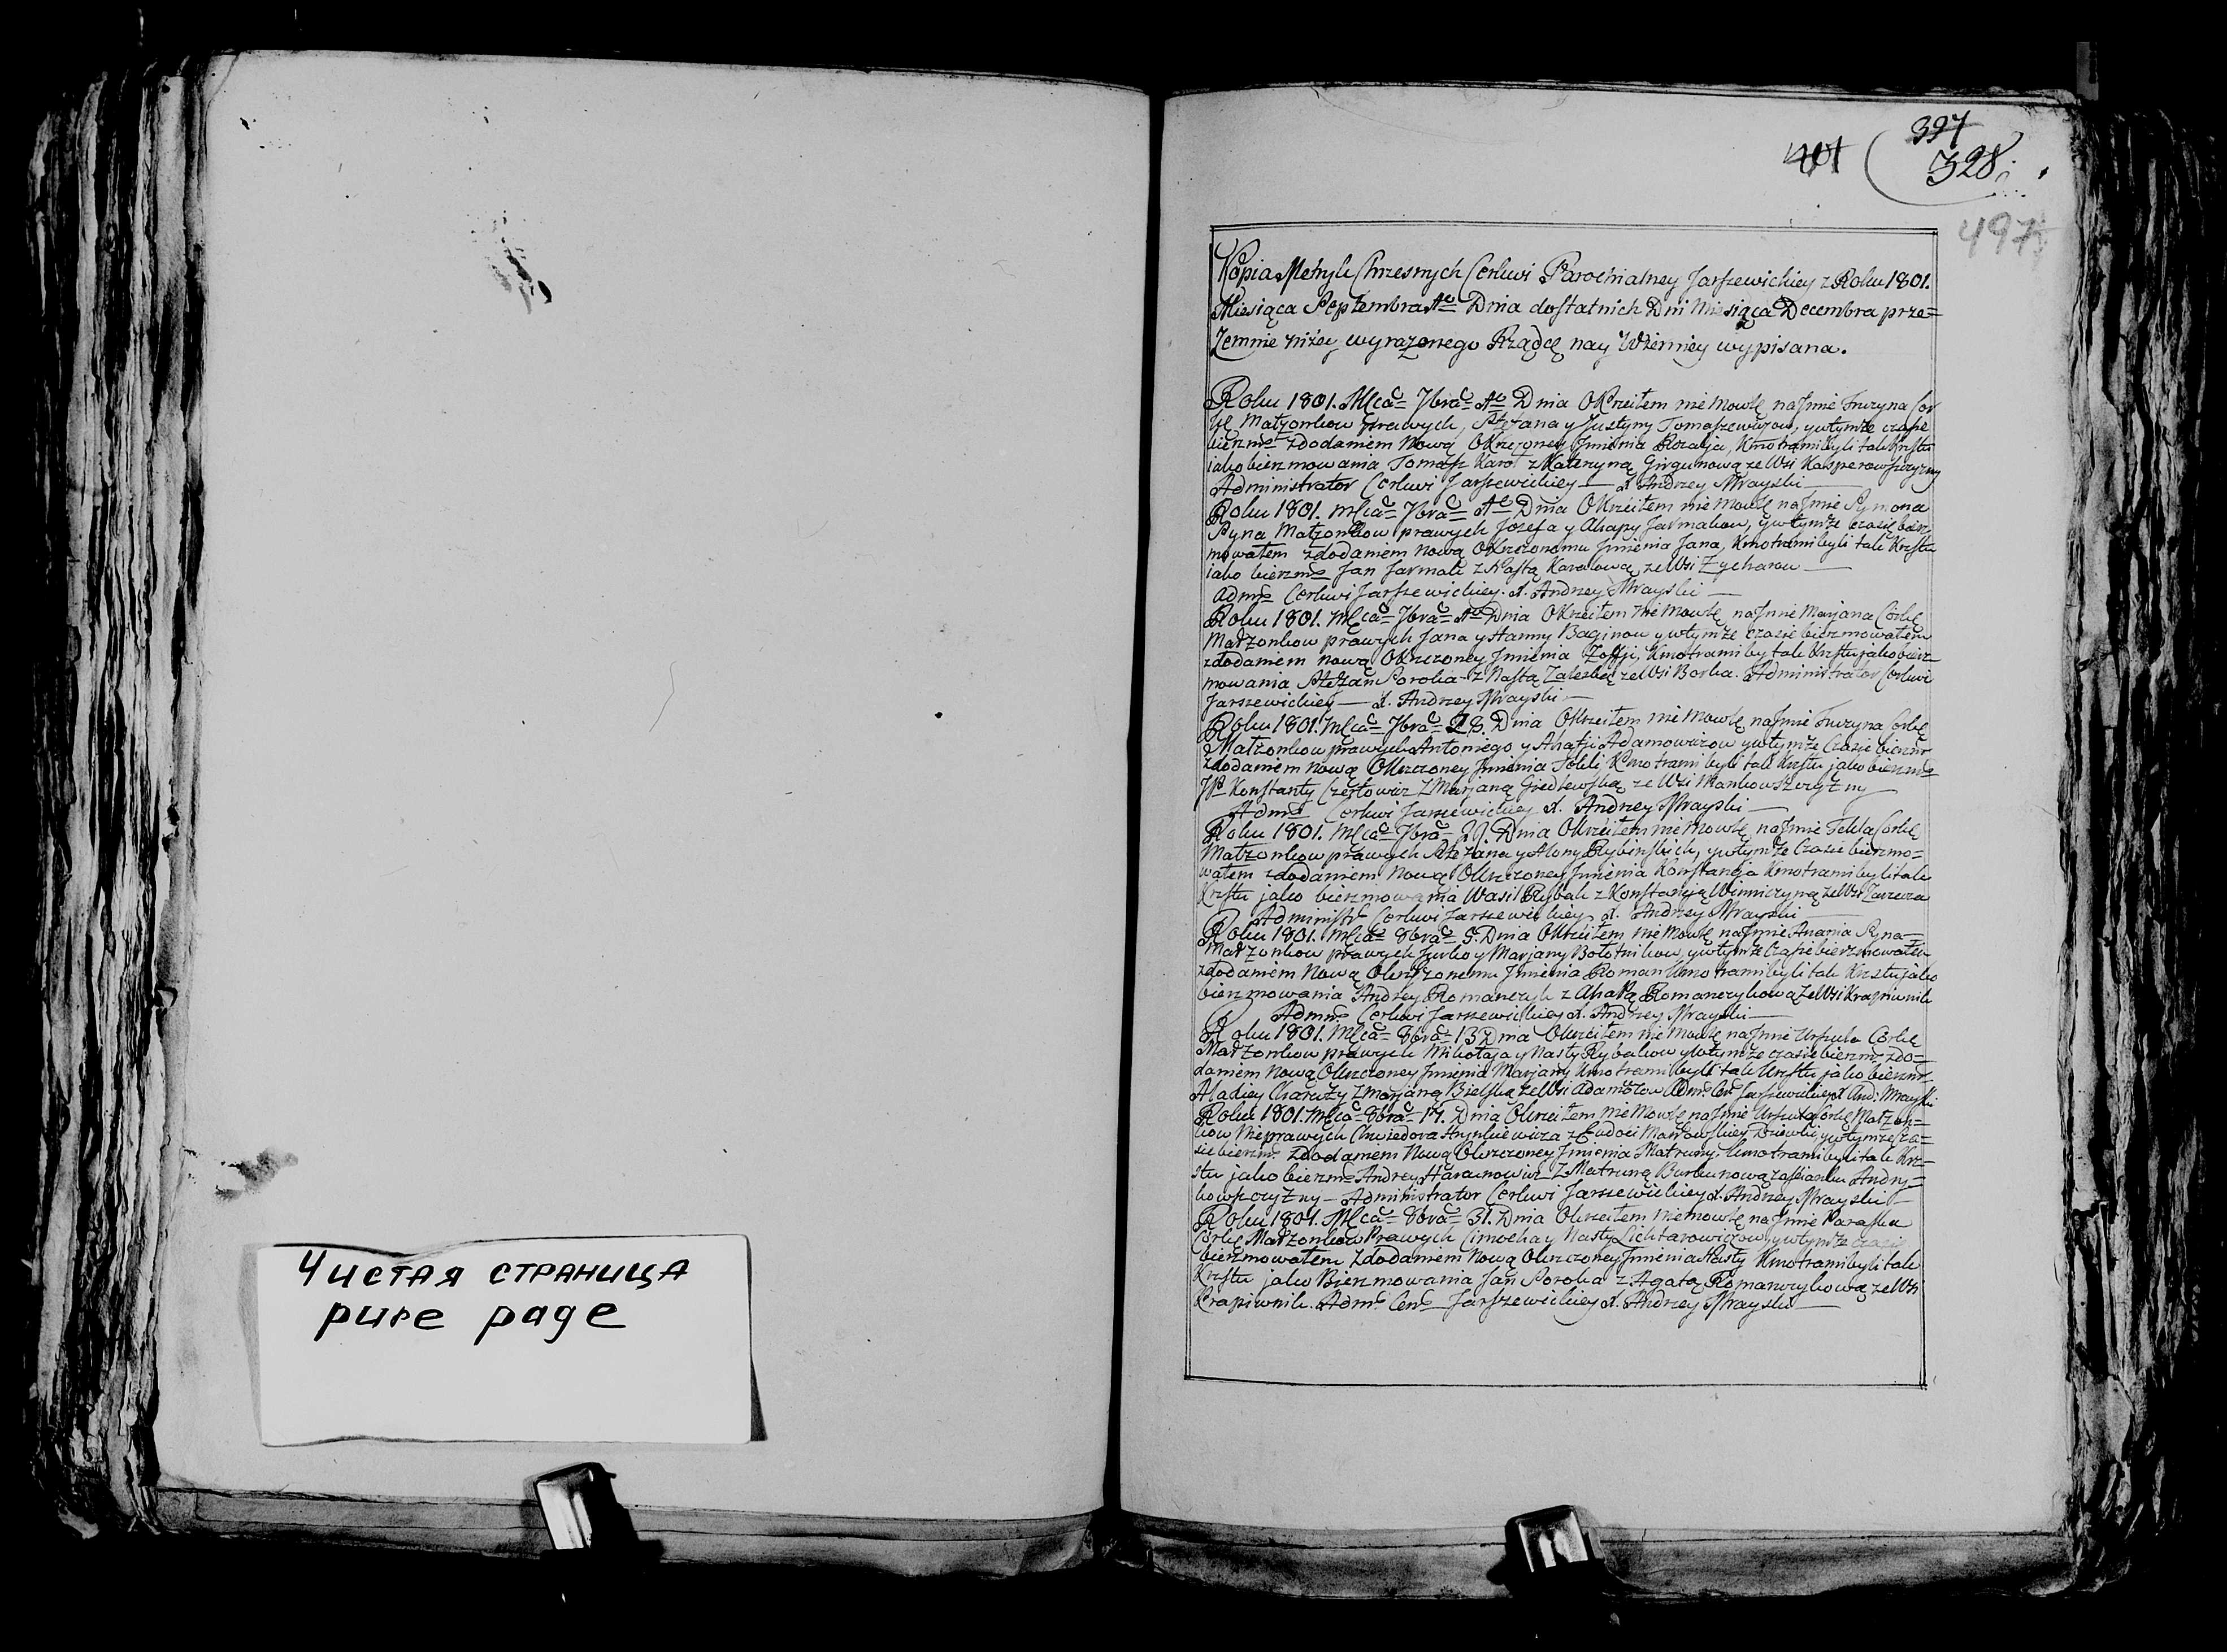 Чистая страница
pure page
401
397
328
497
Kopia Metryk Chrzesnych Cerkwi Parochialney Jarszewickiey z Roku 1801.
Miesiąca Septembra Dnia dostatnich Dni Miesiąca Decembra prze=
Zemnie niżey wyrażonego Rządcę nay Wierniey wypisana.
Roku 1801. Mlca 7bra Dnia Okrzciłem niemowlę na Jmie Juzyna Cor
kę Małzonkow prawych, Stefana y Justyny Tomaszewiczow, y wtymże czasie
bierzm zdodaniem nową Okrzczoney Jmienia Rozalja, Kmotrami byli tak Krzstu
jako bierzmowania Tomasz Karol z Kateryną Girgunową ze Wsi Kasperowszczyzny
Administrator Cerkwi Jarszewickiey X Andrzey Mrayski
Roku 1801. Mlca 7bra Dnia Okrzciłem niemowlę na Jmie Symona
Syna Małzonkow prawych Jozefa y Ahapy Jarmakow, y wtymże czasie bierz
mowałem zdodaniem nową Okrzczonemu Jmienia Jana, Kmotrami byli tak Krzstu
jako bierzm Jan Jarmak z Nastą Karolową ze Wsi Zycharow
Adm Cerkwi Jarszewickiey X. Andrzey Mrayski
Roku 1801. Mlca 7bra Dnia Okrzciłem niemowlę na Jmie Marjana Corkę
Małzonkow prawych Jana y Hanny Baginow y wtymże czasie bierzmowałem
zdodaniem nową Okrzczoney Jmienia Zofji, Kmotrami by tak Krzstu jako bierz=
mowania Stefan Soroka z Nastą Zaleską ze Wsi Borka. Administrator Cerkwi
Jarszewickiey X. Andrzey Mrayski
Roku 1801. Mlca 7bra 28. Dnia Okrzciłem niemowlę na Jmie Juzyna Corkę
Małzonkow prawych Antoniego y Ahafji Adamowiczow y wtymże czasie bierzm
zdodaniem nową Okrzczoney Jmienia Tekli Kmotrami byli tak Krzstu jako bierzm
JP Konstanty Częstowicz z Marjaną Giedlewską ze Wsi Mankowszczyzny
Adm Cerkwi Jarszewickiey X. Andrzey Mrayski
Roku 1801. Mlca 7bra 29 Dnia Okrzciłem niemowlę na Jmie Tekla Corkę
Małzonkow prawych Stefana y Alony Rybinskich, y wtymże czasie bierzmo=
wałem zdodaniem nową Okrzczoney Jmienia Konstancja Kmotrami byli tak
Krzstu jako bierzmowania Wasil Rybak z Konstancją Winniczyną ze Wsi Zarzecza
Administr Cerkwi Jarszewickiey X. Andrzey Mrayski
Roku 1801. Mlca 8bra 5. Dnia Okrzciłem niemowlę na Jmie Anania Syna
Małzonkow prawych Jurko y Marjany Bołotnikow, y wtymże czasie bierzmowałem
zdodaniem nową Okrzczonemu Jmienia Roman Kmotrami byli tak Krzstu jako
bierzmowania Andrzey Romanczyk z Ahapą Romanczykową ze Wsi Krapiwnik
Adm Cerkwi Jarszewickiey X. Andrzey Mrayski
Roku 1801. Mlca 8bra 13 Dnia Okrzciłem niemowlę na Jmie Urszula Corkę
Małzonkow prawych Mikołaja y Nasty Rybakow y wtymże czasie bierzm zdo=
daniem nową Okrzczoney Jmienia Marjany Kmotrami byli tak Krzstu jako bierzm
Charuży z Marjaną Bielską ze Wsi Adamow Adm Cer Jarszewickiey X And: Mrayski
Roku 1801. Mlca 8bra 17. Dnia Okrzciłem niemowlę na Jmie Urszula Corkę Małzon=
kow Nieprawych Chwiedora Hrynkiewicza z Eudoci Marowskiey Dziewki, y wtymże cza=
sie bierzm zdodaniem nową Okrzczoney Jmienia Matruny. Kmotrami byli tak Krz=
stu jako bierzm Andrey Haranowicz z Matruną Burkunową zascianku Andry=
kowszczyzny Administrator Cerkwi Jarszewickiey X. Andrzey Mrayski
Roku 1801. Mlca 8bra 31. Dnia Okrzciłem niemowlę na Jmie Paraska
Corkę Małzonkow Prawych Cimocha y Nasty Lichtarowiczow, y wtymże czasie
bierzmowałem zdodaniem nową Okrzczoney Jmienia Nasty Kmotrami byli tak
Krzstu jako Bierzmowania Jan Soroka z Agatą Romanczykową ze Wsi
Krapiwnik. Adm Cer Jarszewickiey X. Andrzey Mrayski